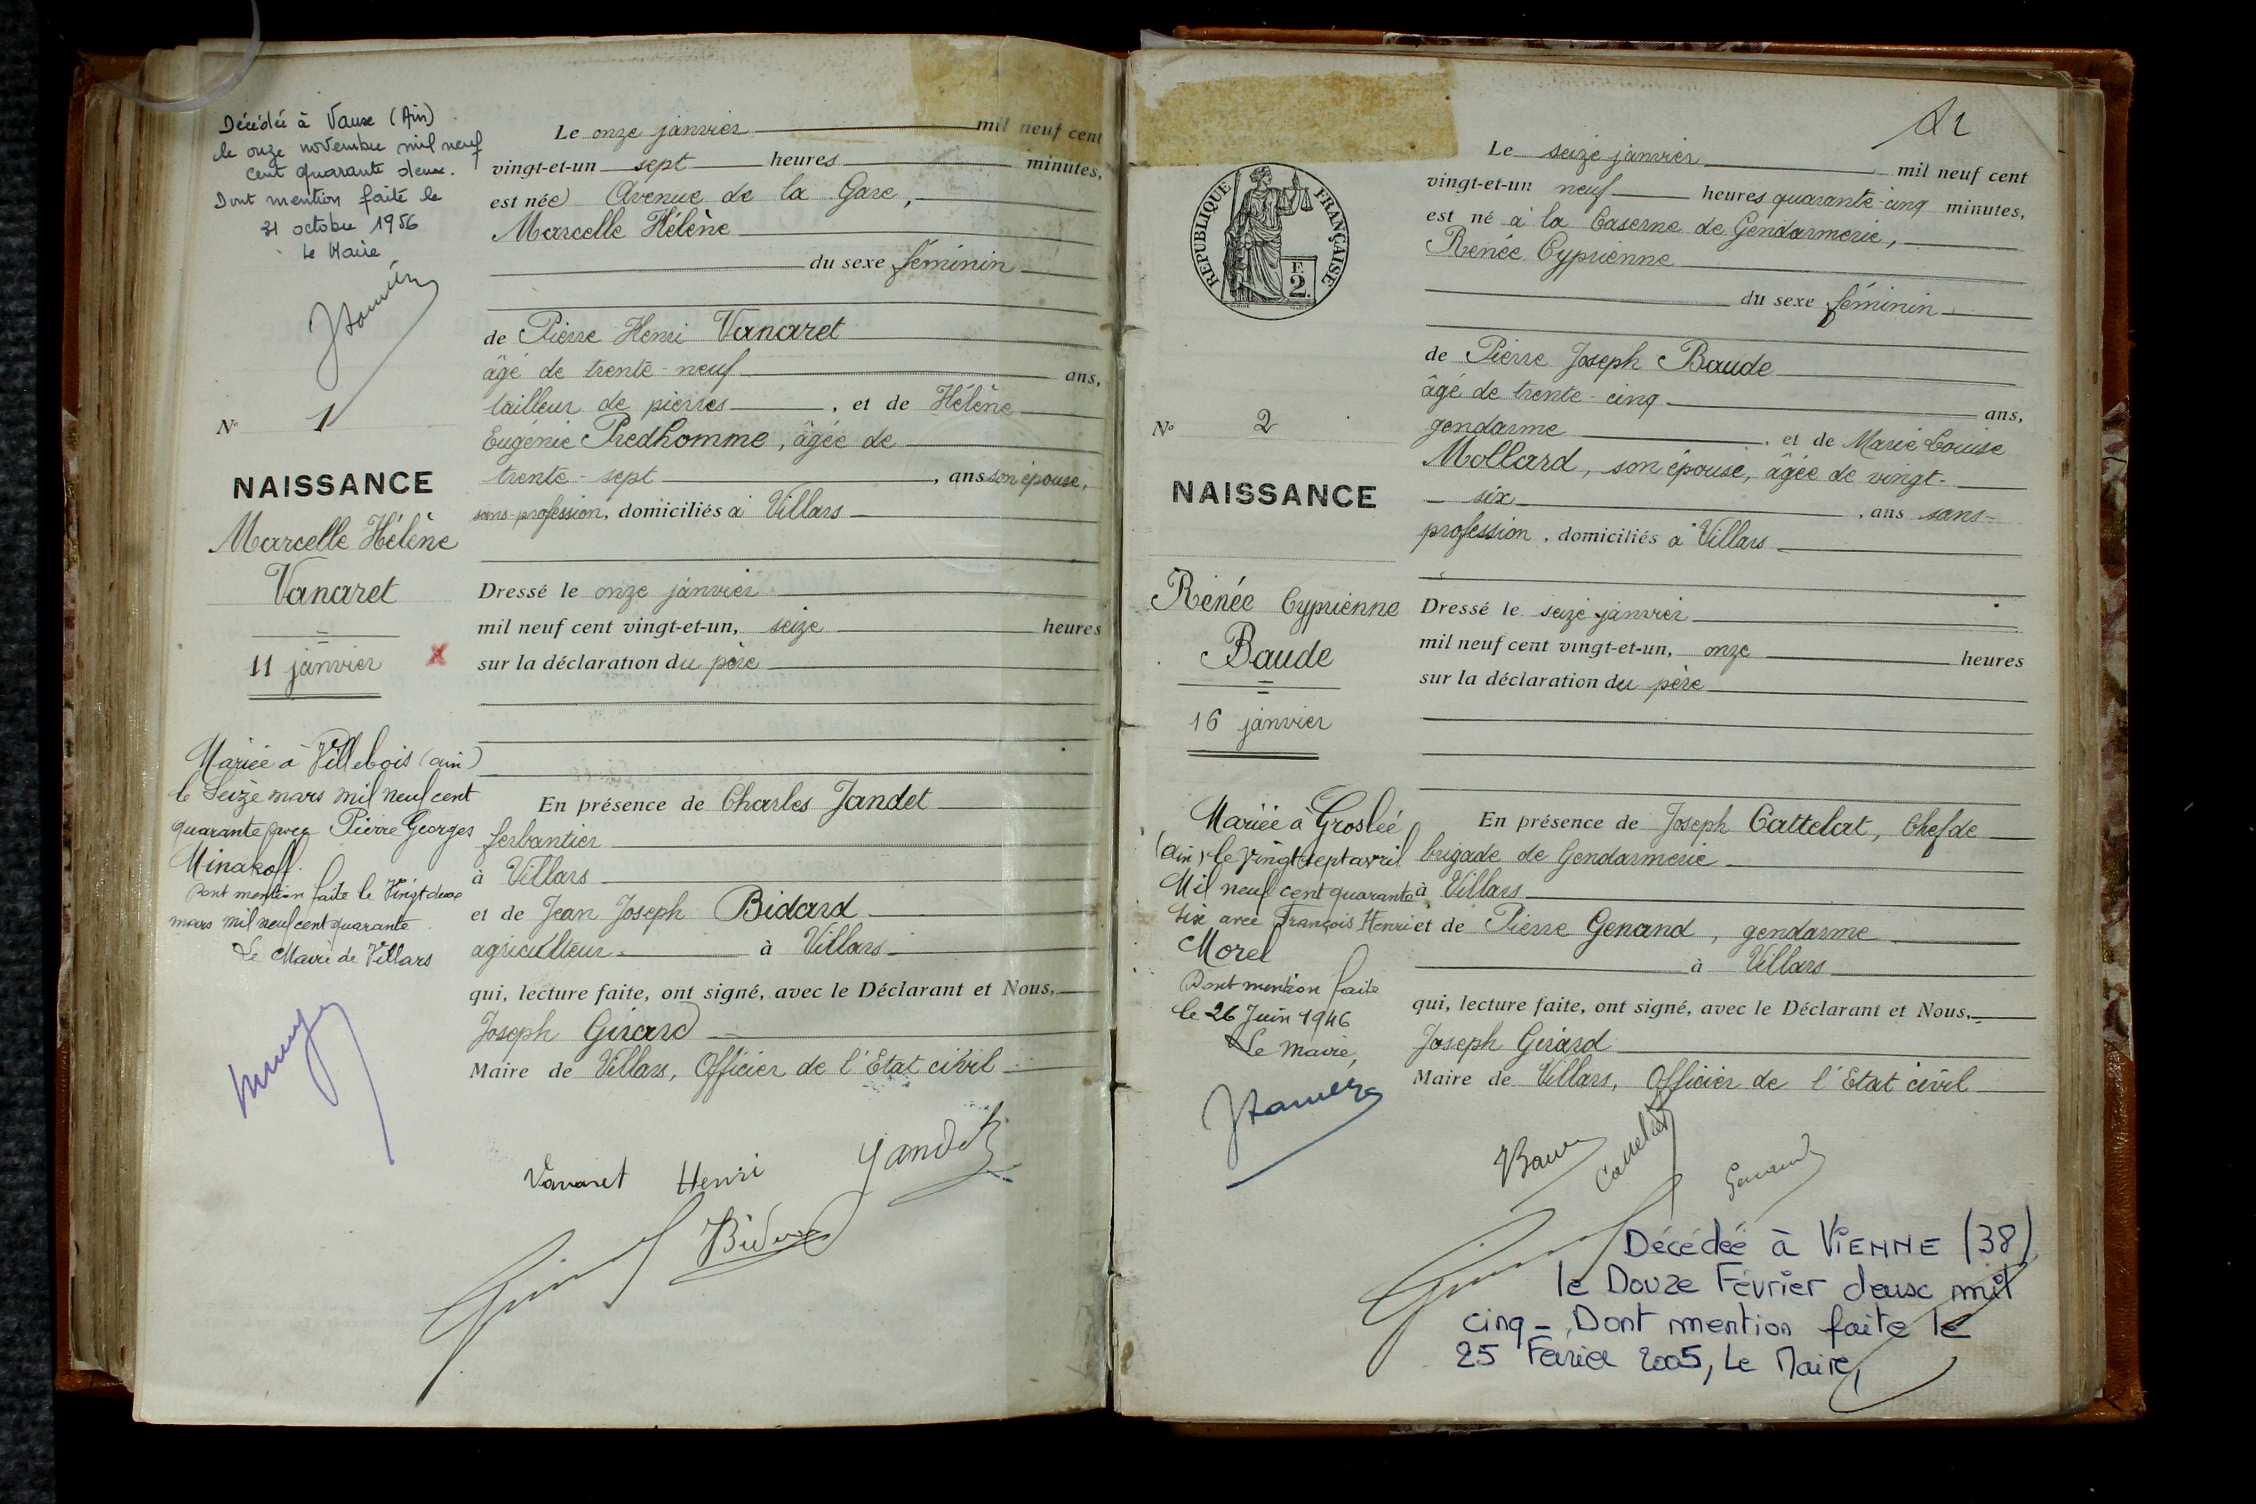 Décédée à Vaux (Ain)
le onze novembre mil neuf
cent quarante deux.
Dont mention faite le
31 octobre 1956
Le Maire
N° 1
NAISSANCE
Marcelle Hélène
Vanaret
11 janvier
x
Mariée à Villebois (ain)
le Seize mars mil neuf cent
quarante avec Pierre Georges
Minakoff.
Dont mention faite le Vingt deux
mars mil neuf cent quarante
Le Maire de Villars
Le onze janvier mil neuf cent
vingt-et-un sept heures minutes,
est née Avenue de la Gare,
Marcelle Hélène
du sexe féminin
de Pierre Henri Vanaret
âgé de trente-neuf ans,
tailleur de pierres, et de Hélène
Eugénie Predhomme, âgée de
trente-sept, ans son épouse,
sans profession, domiciliés à Villars
Dressé le onze janvier
mil neuf cent vingt-et-un, seize heures
sur la déclaration du père
En présence de Charles Jandet
ferbantier
à Villars
et de Jean Joseph Bidard
agriculteur à Villars
qui, lecture faite, ont signé, avec le Déclarant et Nous,
Joseph Girard
Maire de Villars, Officier de l'Etat civil
Vanaret Henri Jandet
Bidard
RÉPUBLIQUE FRANÇAISE
E
2
N° 2
NAISSANCE
Renée Cyprienne
Baude
16 janvier
Mariée à Groslée
(Ain) le vingt sept avril
Mil neuf cent quarante
six avec François Henri
Morel
Dont mention faite
le 26 Juin 1946
Le Maire,
Le seize janvier mil neuf cent
vingt-et-un neuf heures quarante-cinq minutes,
est né à la Caserne de Gendarmerie,
Renée Cyprienne
du sexe féminin
de Pierre Joseph Baude
âgé de trente-cinq ans,
gendarme, et de Marie Louise
Mollard, son épouse, âgée de vingt-
six, ans sans-
profession, domiciliés à Villars
Dressé le seize janvier
mil neuf cent vingt-et-un, onze heures
sur la déclaration du père
En présence de Joseph Cattelat, Chef de
brigade de Gendarmerie
à Villars
et de Pierre Genand, gendarme
à Villars
qui, lecture faite, ont signé, avec le Déclarant et Nous,
Joseph Girard
Maire de Villars, Officier de l'Etat civil
Cattelat Genand
Décédée à VIENNE (38)
le Douze Février deux mil
cinq - Dont mention faite le
25 Février 2005, Le Maire,